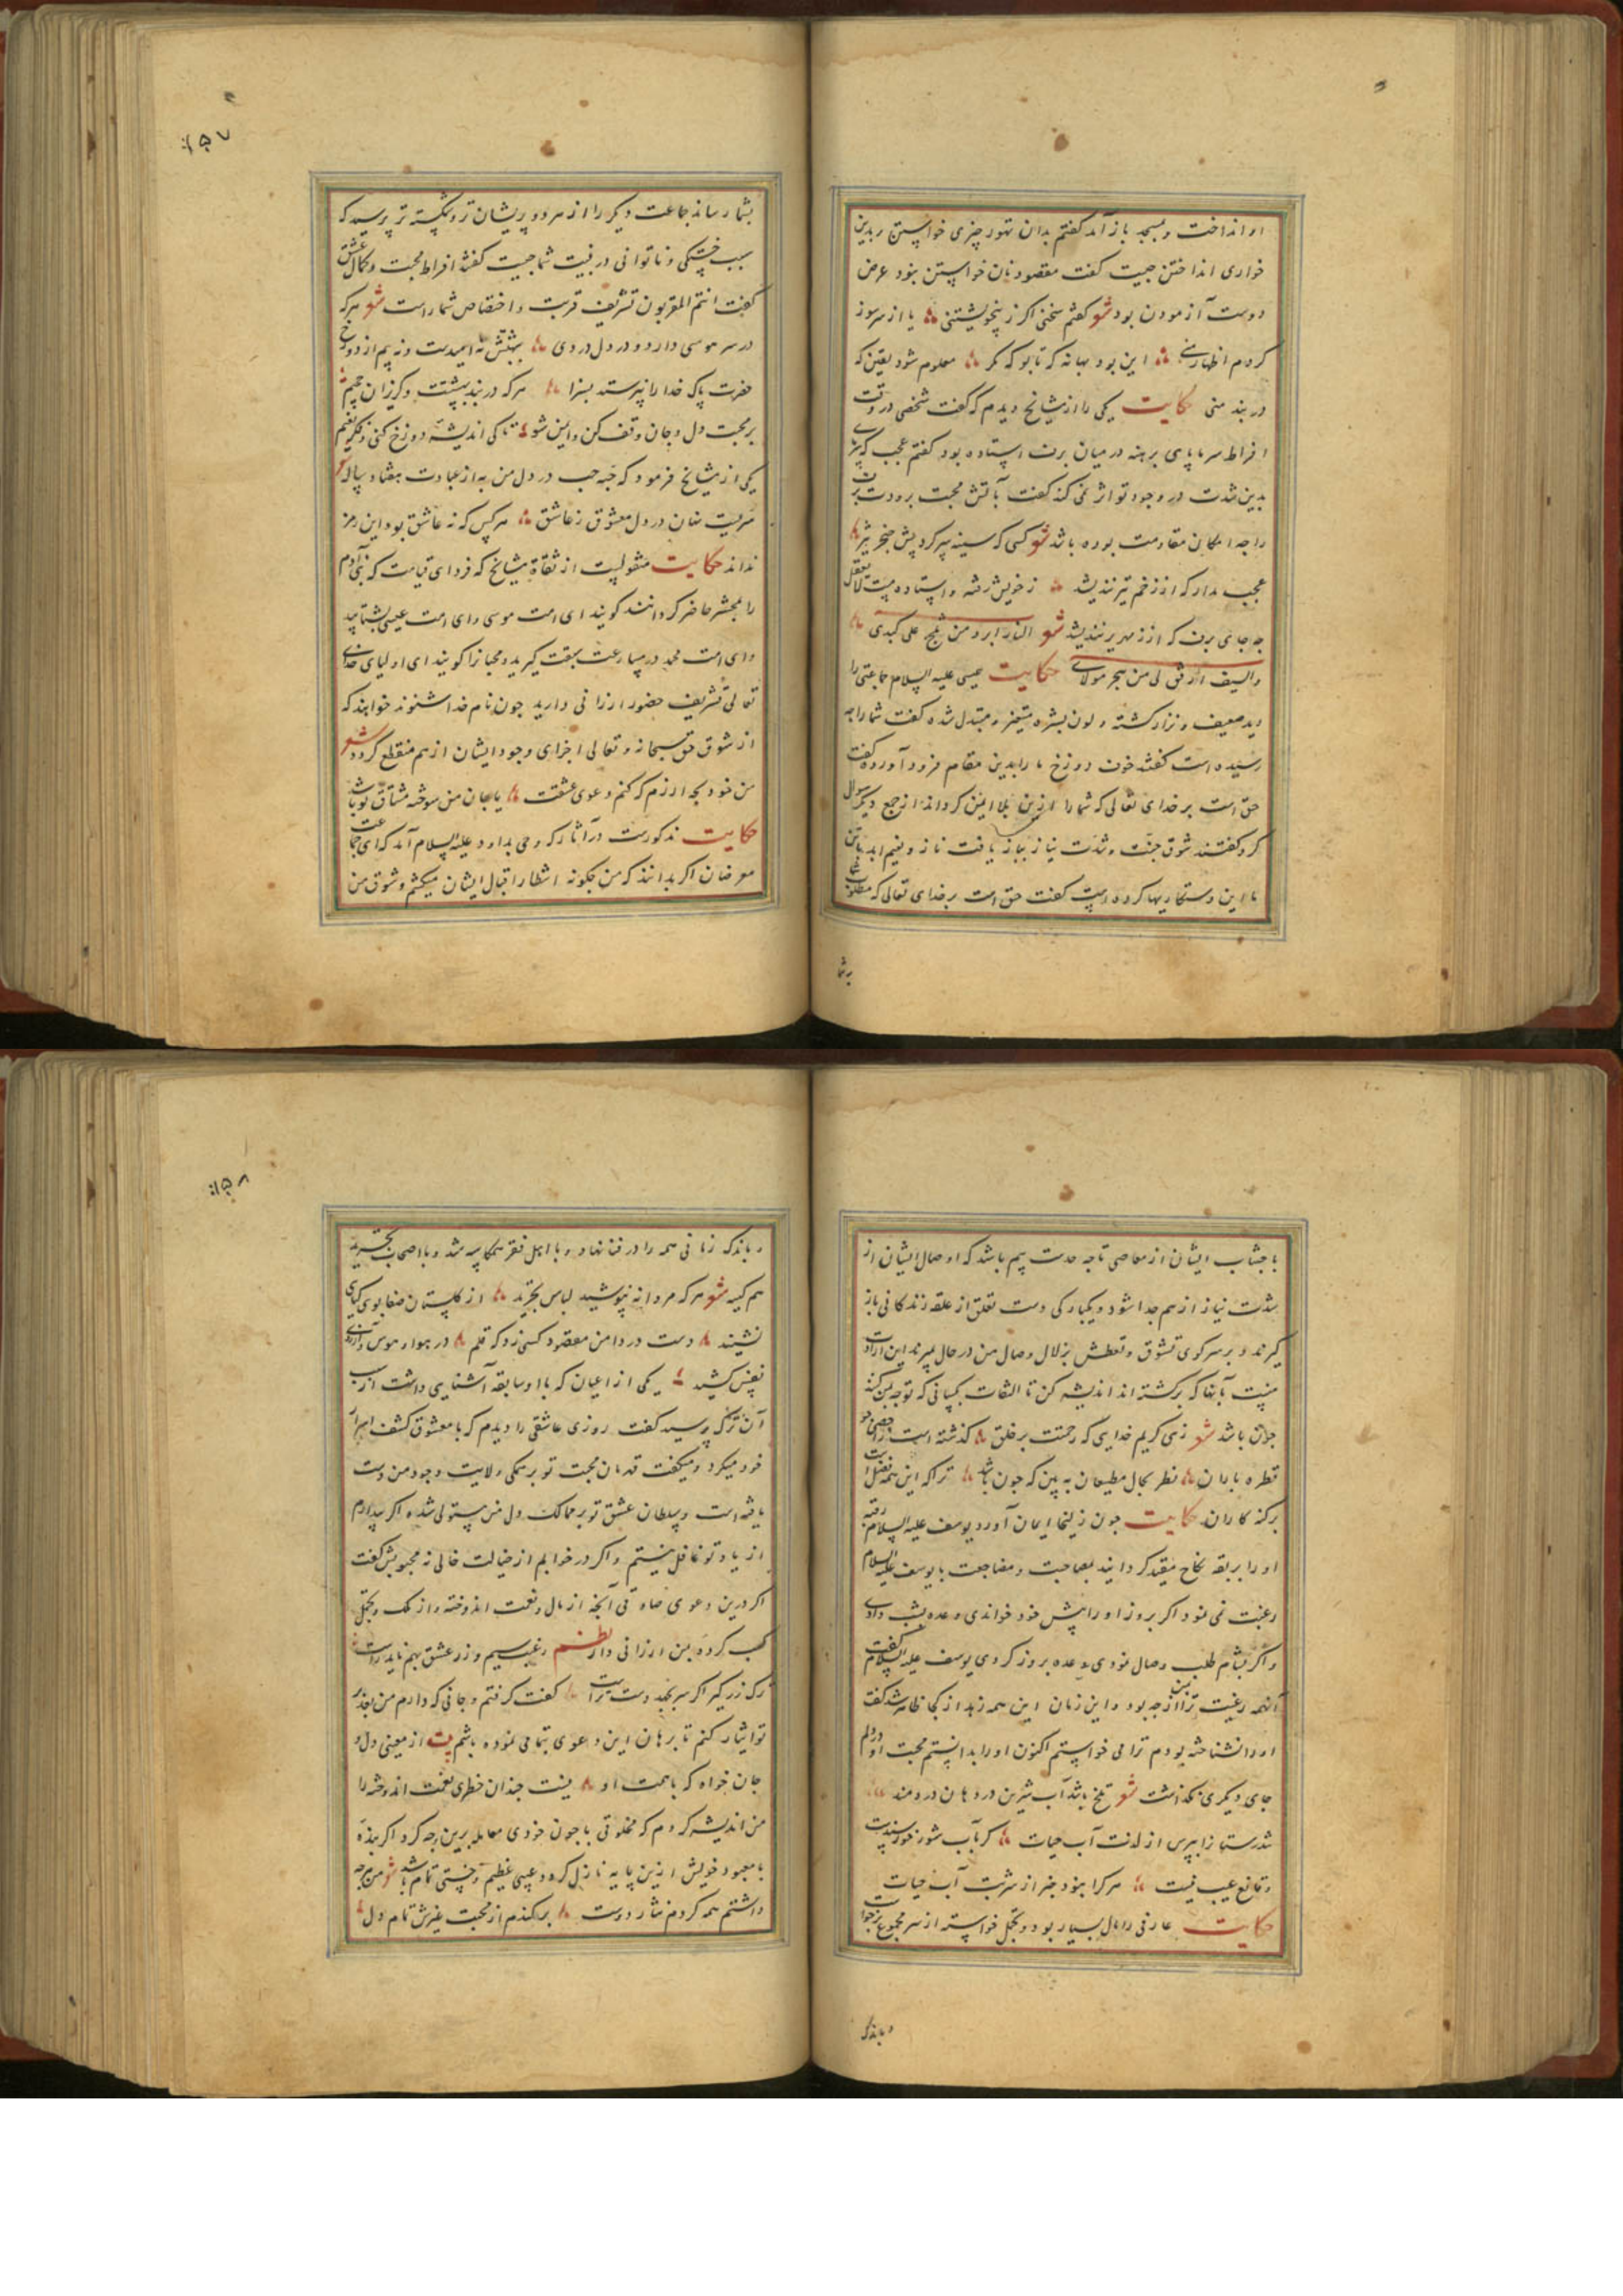 او انداخت و بمسجد باز آمد گفتم بدان تهور چیزی خواستن و بدین
خواری انداختن چیست گفت مقصود نان خواستن نبود غرض
دوست آزمودن بود شعر گفتم سخنی اکر ز بیخویشتنی یا از سر سوز
کردم اظهار منی این بود بهانه که تا بو که مکر معلوم شود یقین که
در بند منی حکایت یکی را از مشایخ دیدم که گفت شخصی در وقت
افراط سرما پای برهنه در میان برف استاده بود گفتم عجب که سرمای
بدین شدت در وجود تو اثر نمی کند گفت با تش محبت برودت برف
را چه امکان مقاومت بوده باشد شعر کسی که سینه سپر کرد پیش خنجر تیز
عجب مدار که از زخم تیر نندیشد ز خویش رفته و استاده مست لایعقل
چه جای برف که از زمهریر نندیشد شعر النار ابرد من ثلج علی کبدی
والسیف ارفق لی من هجر مولای حکایت عیسی علیه السلام جماعتی را
دید ضعیف و نزار کشته و لون بشره متغیر و متبدل شده گفت شما را چه
رسیده است گفتند خوف دوزخ ما را بدین مقام فرود آورده گفت
حق است بر خدای تعالی که شما را ازین بلا ایمن کرداند از جمع دیکر سوال
کرد گفتند شوق جنت و شدت نیاز بباز یافت ناز و نعیم ابد یافتن
با این دستکاریها کرده است گفت حق است بر خدای تعالی که مطلوب شما
به شما
۱۵۷
بشما رساند جماعت دیکر را از هر دو پریشان تر و شکسته تر پرسید که
سبب خستکی و ناتوانی در بنیت شما چیست گفتند افراط محبت و کمال عشق
گفت انتم المقربون تشریف قربت و اختصاص شما راست شعر هر که
در سر هوسی دارد و در دل دردی بهشتش نه امیدست و نه بیم از دوزخ
حضرت پاک خدا را نپرستد بسزا هر که در بند بهشتست و کریزان جحیم
بر محبت دل و جان وقف کن و ایمن شو تا کی اندیشه دوزخ کنی و فکر نعیم
یکی از مشایخ فرمود که حبه حب در دل من به از عبادت هفتاد ساله
سریست نهان در دل معشوق ز عاشق هر کس که نه عاشق بود این رمز
نداند حکایت منقولست از ثقاة مشایخ که فردای قیامت که بنی آدم
را بمحشر حاضر کردانند کویند ای امت موسی و ای امت عیسی بشتابید
و ای امت محمد در مسارعت سبقت کیرید و محبانرا کویند ای اولیای خدای
تعالی تشریف حضور ارزانی دارید چون نام خدا شنوند خواهند که
از شوق حق سبحانه و تعالی اجزای وجود ایشان از هم منقطع کردد شعر
من خود بچه ارزم که کنم دعوی عشقت یا جان من سوخته مشتاق تو باشد
حکایت مذکورست در آثار که وحی بداود علیه السلام آمد که ای جماعت
معرضان اکر بدانند که من چکونه انتظار اقبال ایشان میکشم و شوق من
باجتناب ایشان از معاصی تا چه حدست بیم باشد که اوصال ایشان از
شدت نیاز از هم جدا شود و یکبارکی دست تعلق از علقه زندکانی باز
کیرند و بر سر کوی تشوق و تعطش بزلال وصال من در حال بمیرند این ارادت
منست با آنها که برکشته اند اندیشه کن تا التفات بکسانی که توجه بمن کنند
چون باشد شعر زهی کریم خدایی که رحمتت بر خلق کذشته است ز احصای
قطره باران نظر بحال مطیعان ببین که چون باشد ترا که این همه فضلست
بر کنه کاران حکایت چون زلیخا ایمان آورد یوسف علیه السلام رقبه
او را بربقه نکاح مقید کردانید بمصاحبت و مضاجعت با یوسف علیه السلام
رغبت نمی نمود اکر بروز او را پیش خود خواندی وعده بشب دادی
و اکر شبانگاه طلب وصال نمودی وعده بروز کردی یوسف علیه السلام گفت
آنهمه رغبت ترا بمن از چه بود و این زمان این همه زهد از کجا ظاهر شد گفت
او را نشناخته بودم ترا می خواستم اکنون او را بدانستم محبت او در دلم
جای دیکری نکذاشت شعر تلخ باشد آب شیرین در دهان دردمند
تندرستانرا بپرس از لذت آب حیات کر بآب شور خورسندست
و قانع عیب نیست هر کرا نبود خبر از شربت آب حیات
حکایت عارفی را مال بسیار بود و تجمل خواسته از سر مجموع برخواست
و باندک
۱۵۸
و باندک زمانی همه را در فنا نهاد و با اهل فقر همکاسه شد و با اصحاب تجرید
هم کیسه شعر هر که مردانه نپوشید لباس تجرید از کلستان صفا بوی کیاهی
نشنید دست در دامن مقصود کسی زد که قلم در هوا و هوس و آرزوی
نفس کشید یکی از اعیان که با او سابقه آشنایی داشت از سبب
آن ترک پرسید گفت روزی عاشقی را دیدم که با معشوق کشف اسرار
خود میکرد و میکفت قهرمان محبت تو بر همکی ولایت وجود من دست
یافته است و سلطان عشق تو بر ممالک دل من مستولی شده اکر بیدارم
از یاد تو غافل نیستم و اکر در خوابم از خیالت خالی نه محبوبش گفت
اکر درین دعوی صادقی آنچه از مال و نعمت اندوخته و از ملک و تجمل
کسب کرده بمن ارزانی دار نظم رغبت سیم و زر عشق بهم ناید راست
ترک زر کیر اکر سر بنهد دست تراست گفت کرفتم و جانی که دارم من بعد
تو ایثار کنم تا برهان این دعوی بتمامی نموده باشم بیت از معنی دل و
جان خواه که با همت او نیست چندان خطری نعمت اندوخته را
من اندیشه کردم که مخلوقی با چون خودی معامله برین وجه کرد اکر بنده
با معبود خویش ازین پایه نازل کردد عیبی عظیم و خستی تمام باشد شعر من هرچه
داشتم همه کردم نثار دوست برکندم از محبت غیرش تمام دل